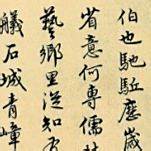 伯也馳駈塵嵗
省意何專儒
藝鄉里從知
艤石城青嶂